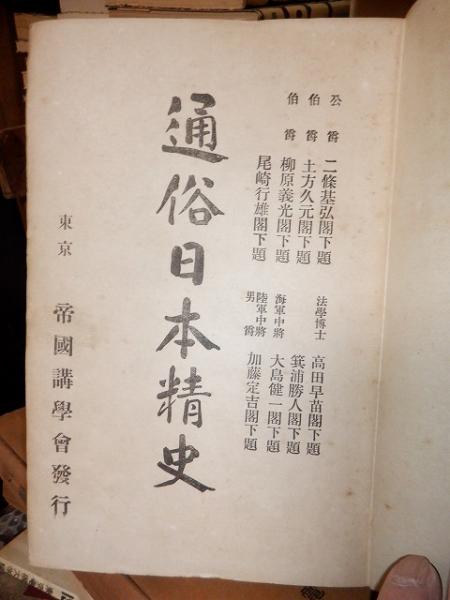 公爵 二條基弘閣下題
伯爵 土方久元閣下題
伯爵 柳原義光閣下題
尾崎行雄閣下題
法學博士 高田早苗閣下題
箕浦勝人閣下題
海軍中將 大島健一閣下題
陸軍中將男爵 加藤定吉閣下題
通俗日本精史
東京 帝國講學會發行